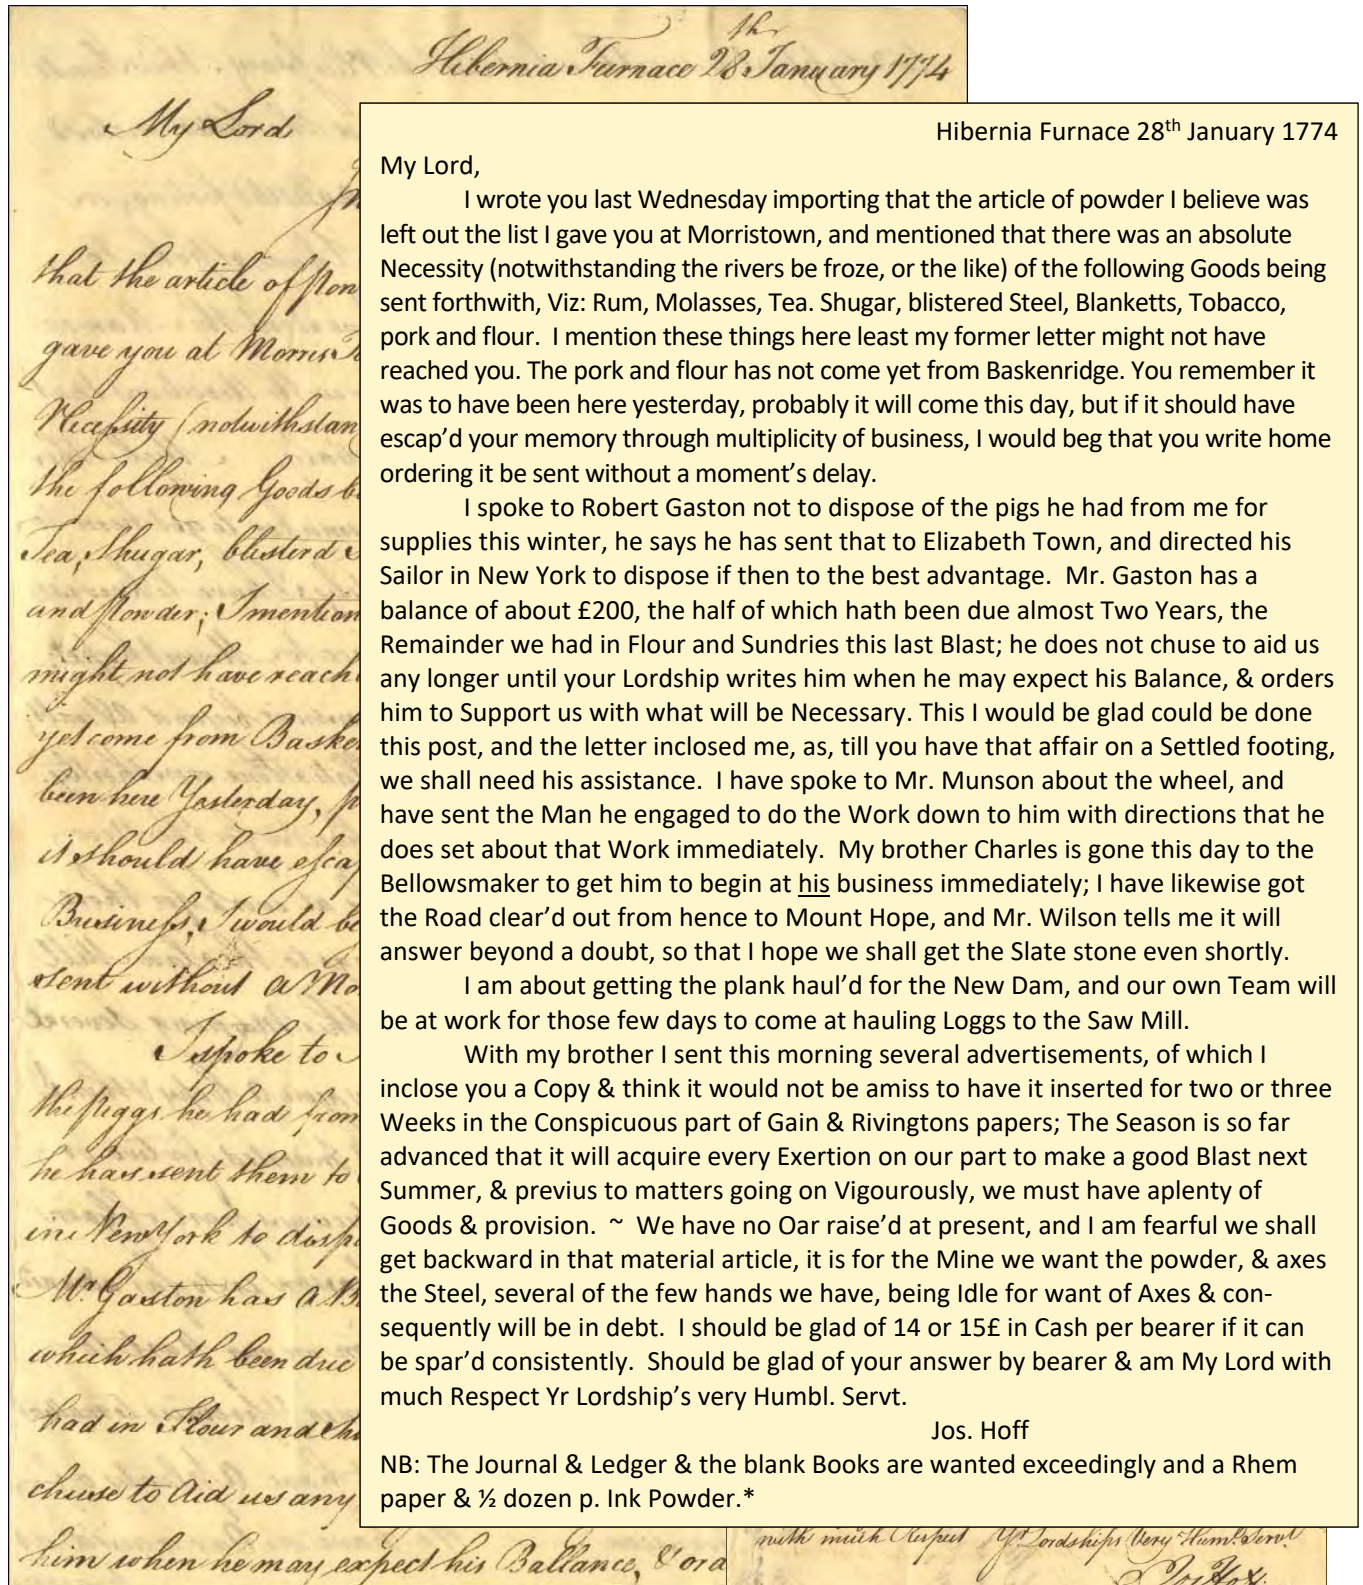 Hibernia Furnace 28th January 1774
My Lord
that the article of pow
gave you at Morris T
Necessity (notwithstan
the following Goods b
Tea, Shugar, blisterd
and powder; I mention
might not have reach
yet come from Baske
been here Yesterday, p
it should have esca
Business, I would be
sent without a Mo
I spoke to
the piggs he had from
he has sent them to
in New York to disp
Mr Gaston has a B
which hath been due
had in Flour and
chuse to Aid us any
him when he may expect his Ballance, & ord
Hibernia Furnace 28th January 1774
My Lord,
I wrote you last Wednesday importing that the article of powder I believe was
left out the list I gave you at Morristown, and mentioned that there was an absolute
Necessity (notwithstanding the rivers be froze, or the like) of the following Goods being
sent forthwith, Viz: Rum, Molasses, Tea. Shugar, blistered Steel, Blanketts, Tobacco,
pork and flour. I mention these things here least my former letter might not have
reached you. The pork and flour has not come yet from Baskenridge. You remember it
was to have been here yesterday, probably it will come this day, but if it should have
escap’d your memory through multiplicity of business, I would beg that you write home
ordering it be sent without a moment’s delay.
I spoke to Robert Gaston not to dispose of the pigs he had from me for
supplies this winter, he says he has sent that to Elizabeth Town, and directed his
Sailor in New York to dispose if then to the best advantage. Mr. Gaston has a
balance of about £200, the half of which hath been due almost Two Years, the
Remainder we had in Flour and Sundries this last Blast; he does not chuse to aid us
any longer until your Lordship writes him when he may expect his Balance, & orders
him to Support us with what will be Necessary. This I would be glad could be done
this post, and the letter inclosed me, as, till you have that affair on a Settled footing,
we shall need his assistance. I have spoke to Mr. Munson about the wheel, and
have sent the Man he engaged to do the Work down to him with directions that he
does set about that Work immediately. My brother Charles is gone this day to the
Bellowsmaker to get him to begin at his business immediately; I have likewise got
the Road clear’d out from hence to Mount Hope, and Mr. Wilson tells me it will
answer beyond a doubt, so that I hope we shall get the Slate stone even shortly.
I am about getting the plank haul’d for the New Dam, and our own Team will
be at work for those few days to come at hauling Loggs to the Saw Mill.
With my brother I sent this morning several advertisements, of which I
inclose you a Copy & think it would not be amiss to have it inserted for two or three
Weeks in the Conspicuous part of Gain & Rivingtons papers; The Season is so far
advanced that it will acquire every Exertion on our part to make a good Blast next
Summer, & previus to matters going on Vigourously, we must have aplenty of
Goods & provision. ~ We have no Oar raise’d at present, and I am fearful we shall
get backward in that material article, it is for the Mine we want the powder, & axes
the Steel, several of the few hands we have, being Idle for want of Axes & con-
sequently will be in debt. I should be glad of 14 or 15£ in Cash per bearer if it can
be spar’d consistently. Should be glad of your answer by bearer & am My Lord with
much Respect Yr Lordship’s very Humbl. Servt.
Jos. Hoff
NB: The Journal & Ledger & the blank Books are wanted exceedingly and a Rhem
paper & ½ dozen p. Ink Powder.*
with much Respect Yr Lordships Very Huml Servt
Jos Hoff